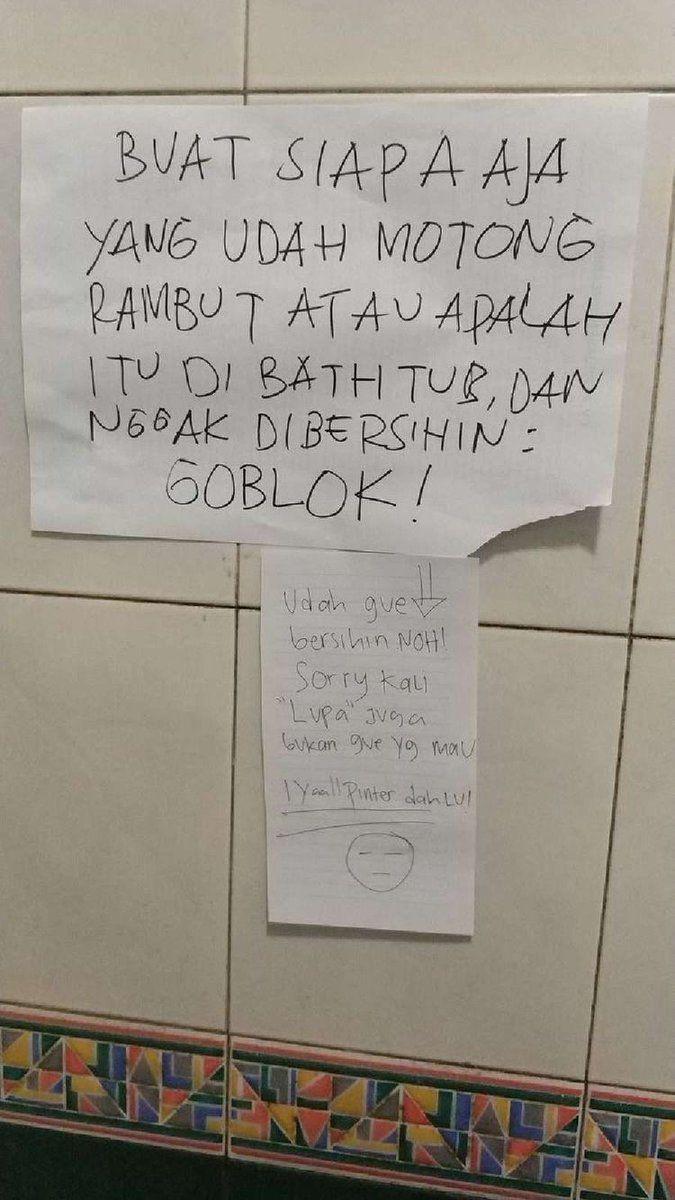 BUAT SIAPA AJA
YANG UDAH MOTONG
RAMBUT ATAU APALAH
ITU DI BATHTUB, DAN
NGGAK DIBERSIHIN :
GOBLOK!
Udah gue
bersihin NOH!
Sorry kali
"Lupa" juga
bukan gue yg mau
IYaa!! Pinter dah LU!